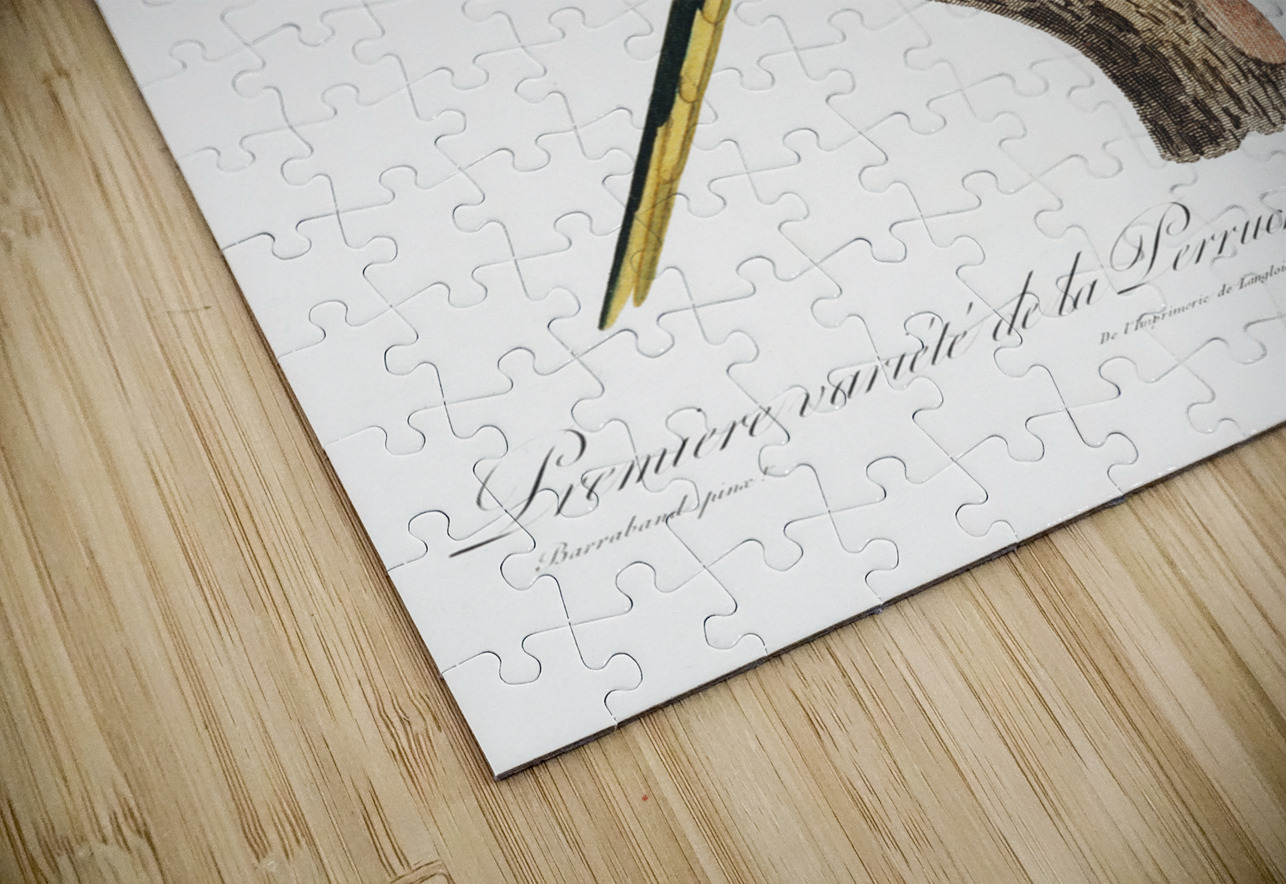 Premiere variété de la Perruc
Barraband pinx.t
De l'Imprimerie de Langlois